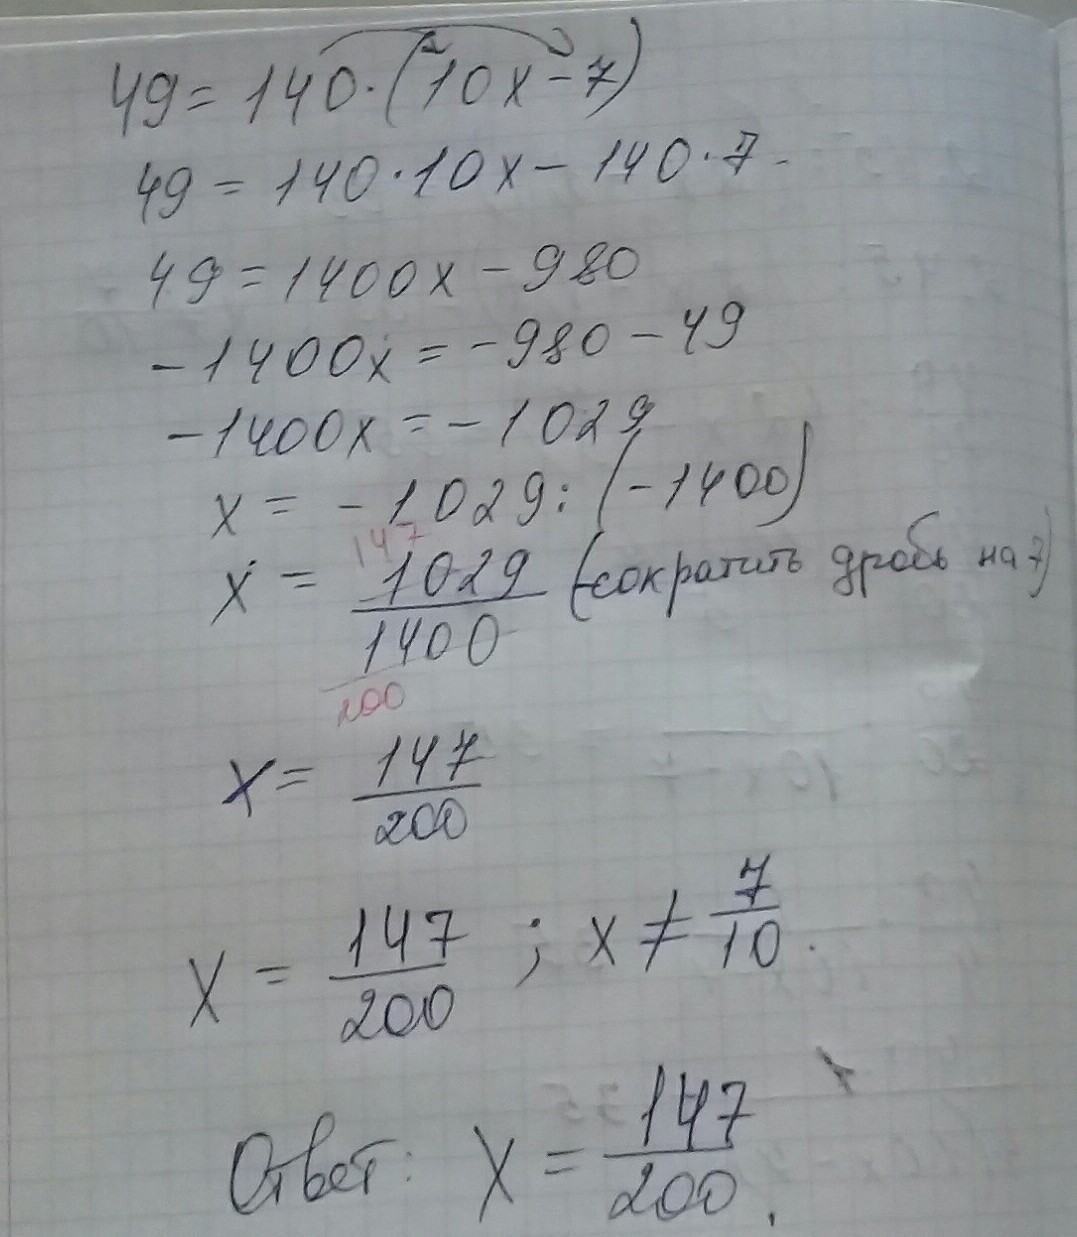 49 = 140 · (10x - 7)
49 = 140 · 10x - 140 · 7
49 = 1400x - 980
-1400x = -980 - 49
-1400x = -1029
x = -1029 : (-1400)
147
x = 1029/1400 (сократить дробь на 7)
200
x = 147/200
x = 147/200 ; x ≠ 7/10.
Ответ: x = 147/200.